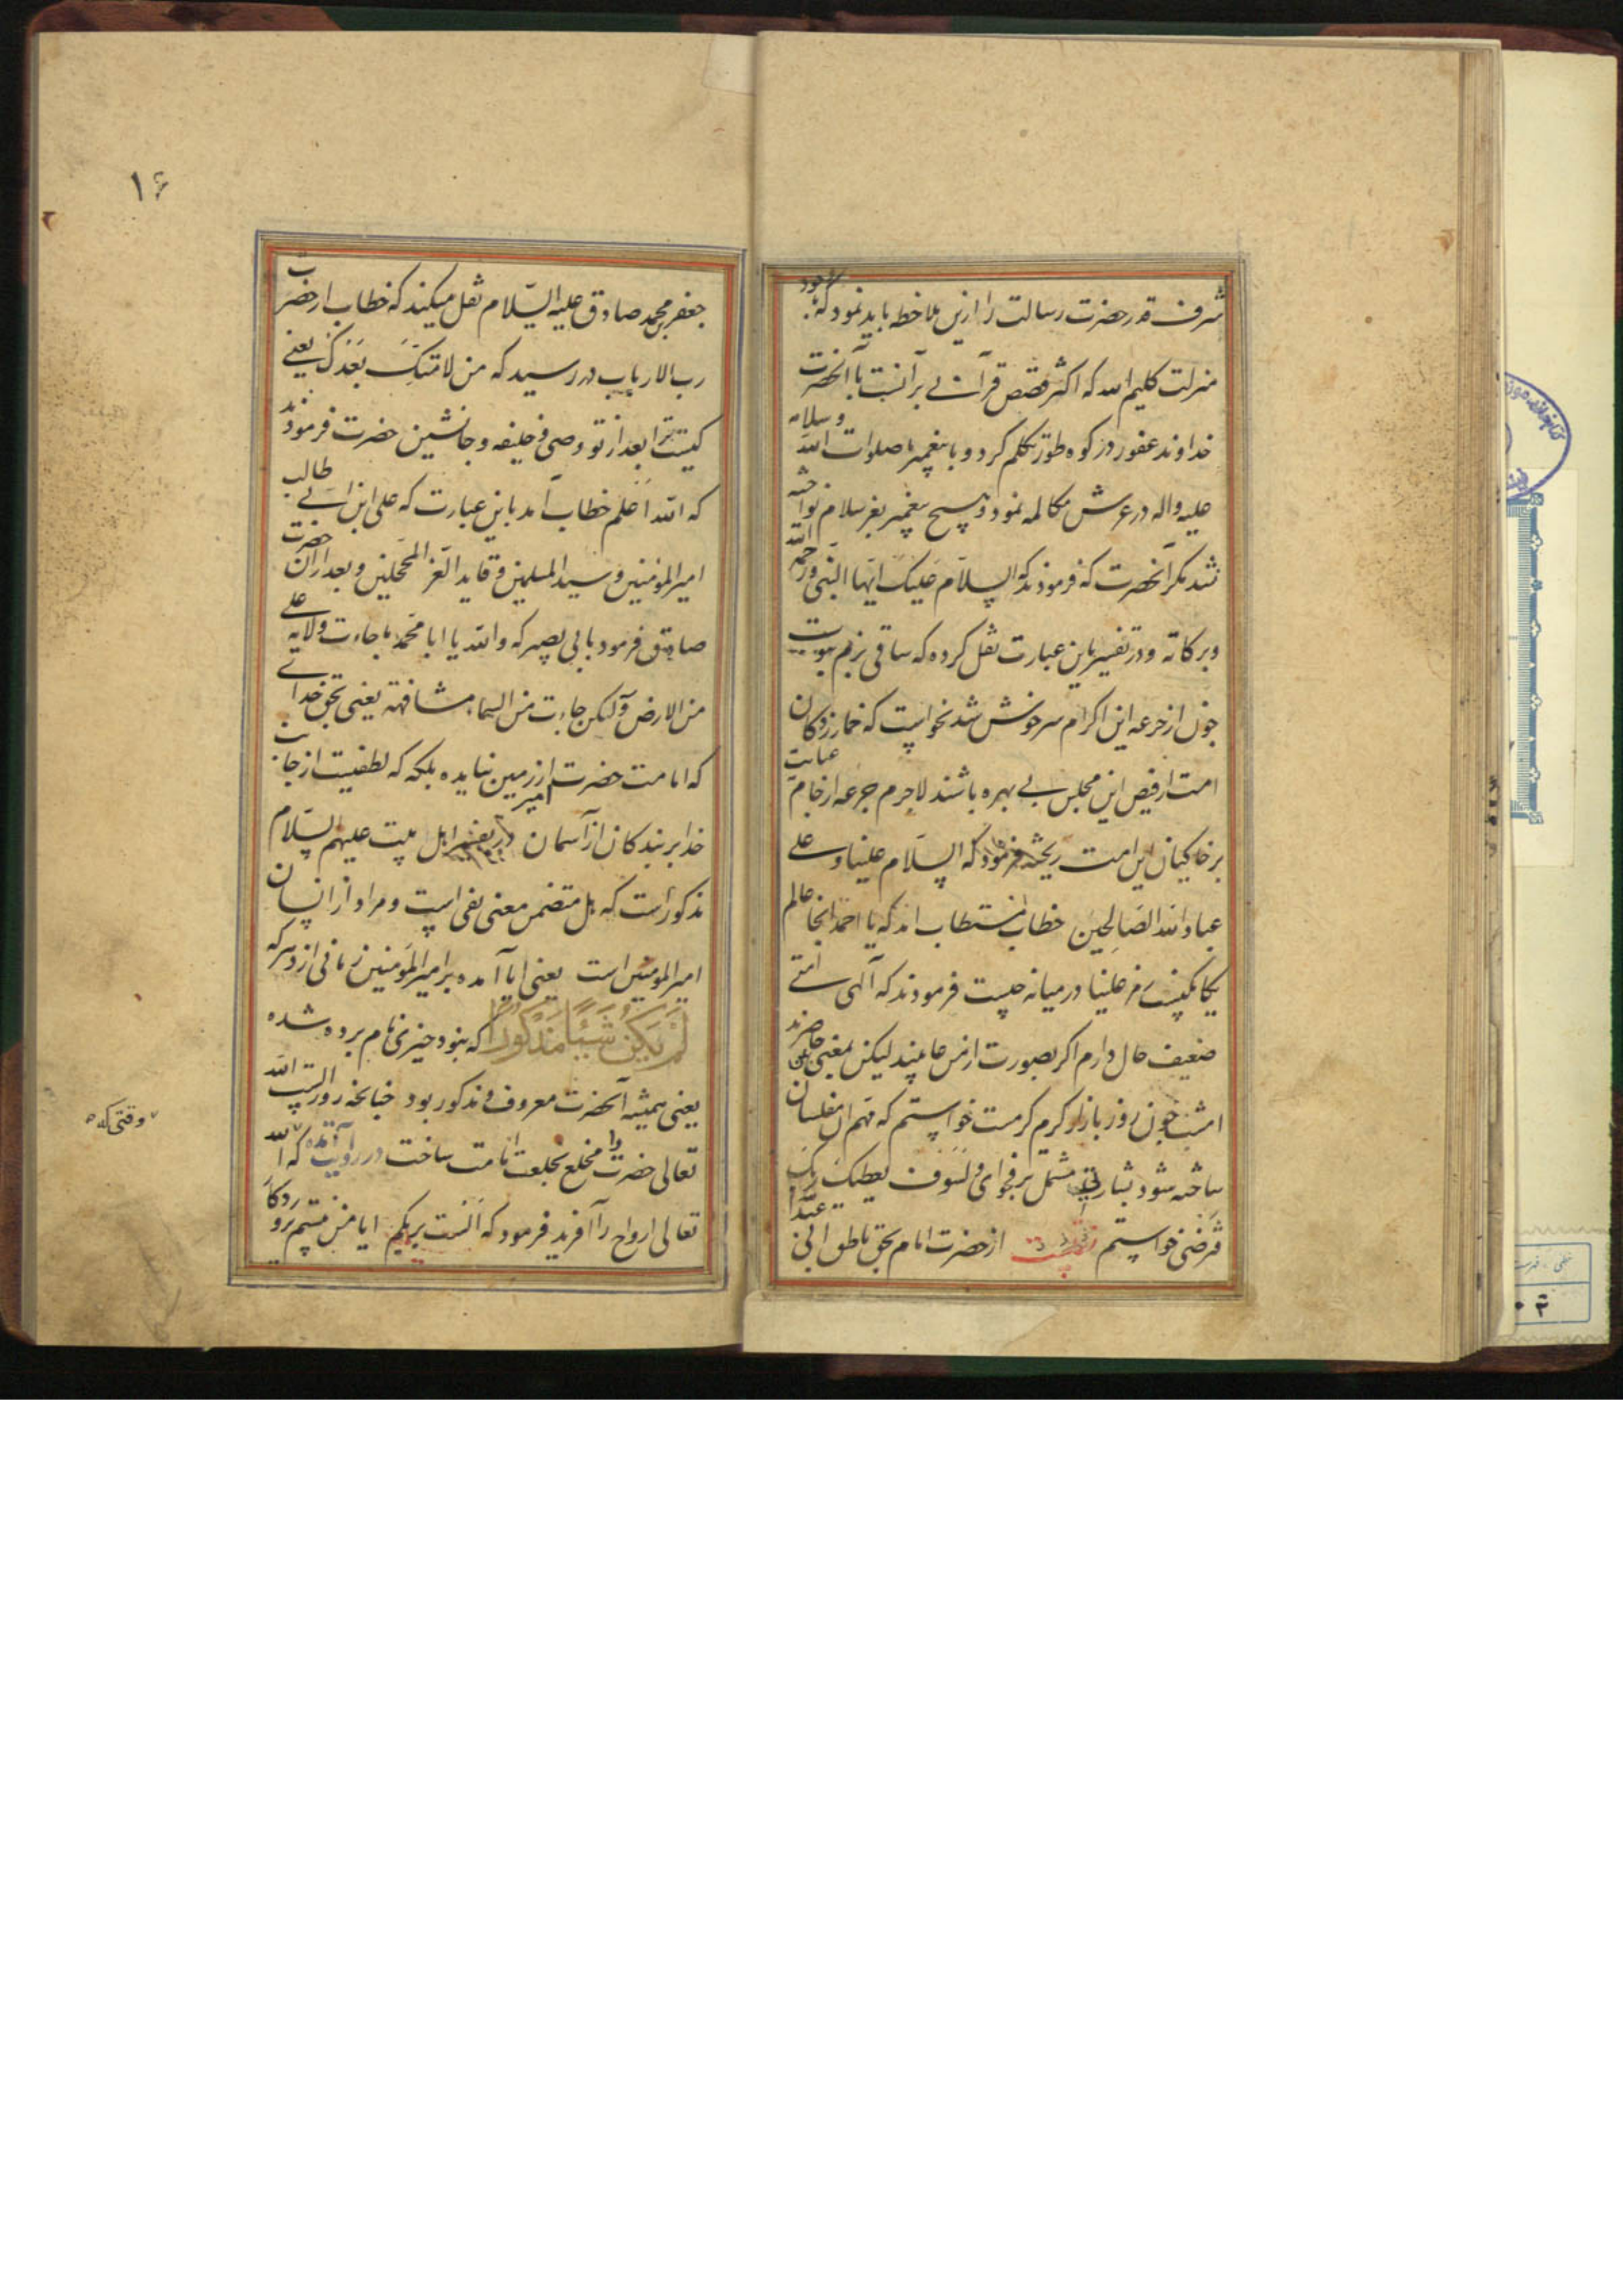 شرف قدر حضرت رسالت را ازین ملاحظه باید نمود که
منزلت کلیم الله که اکثر قصص قرآن بر آنست با آنحضرت
خداوند غفور در کوه طور تکلم کرد و با پیغمبر ما صلوات الله وسلامه
علیه واله در عرش مکالمه نمود و هیچ پیغمبر بغیر سلام نواخته
نشد مکر آنحضرت که فرمودند که السلام علیک ایها النبی ورحمة الله
وبرکاته ودر تفسیر باین عبارت نقل کرده که ساقی بزم نبوت
چون از جرعه این اکرام سرخوش شد نخواست که خمارزدکان
امت از فیض این مجلس بی بهره باشند لاجرم جرعه از جام عنایت
بر خاکیان این امت ریخته فرمود که السلام علینا وعلی
عباد الله الصالحین خطاب مستطاب امد که یا احمد اینجا عالم
یکانکیست علینا در میانه چیست فرمودند که آلهی امتی
ضعیف حال دارم اکر بصورت از من غایبند لیکن بمعنی حاضرند
امشب چون روز بازار کرم کرمست خواستم که مهم ان مفلسان
ساخته شود بشارتی مشتمل بر فحوای ولسوف یعطیک ربک
فترضی خواستم از حضرت امام بحق ناطق ابی عبدالله
جعفر بن محمد صادق علیه السلام نقل میکند که خطاب از حضرت
رب الارباب در رسید که من لامتک بعدک یعنی
کیست بعد از تو وصی و خلیفه و جانشین حضرت فرمودند
که الله اعلم خطاب آمد باین عبارت که علی ابن ابی طالب
امیر المؤمنین وسید المسلمین وقاید الغر المحجلین و بعد ازان حضرت
صادق فرمود بابی بصیر که والله یا ابا محمد ما جاءت ولایة علی
من الارض ولکن جاءت من السماء مشافهة یعنی بحق خدای
که امامت حضرت امیر از زمین نیامده بلکه که لطفیست از جانب
خدا بر بندکان از آسمان در تفسیر اهل بیت علیهم السلام
مذکور است که هل متضمن معنی نفی است ومراد از انسان
امیر المومنین است یعنی ایا آمده بر امیر المؤمنین زمانی از دهر که
لَمْ يَكُنْ شَيْئًا مَذْكُورًا که نبود چیزی نام برده شده
یعنی همیشه آنحضرت معروف و مذکور بود چنانچه روز الست الله
تعالی حضرت را مخلع بخلعت امامت ساخت در روایت آمده که الله
تعالی ارواح را آفرید فرمود که الست بربکم ایا من نیستم پروردکار
وقتی که
۱۶